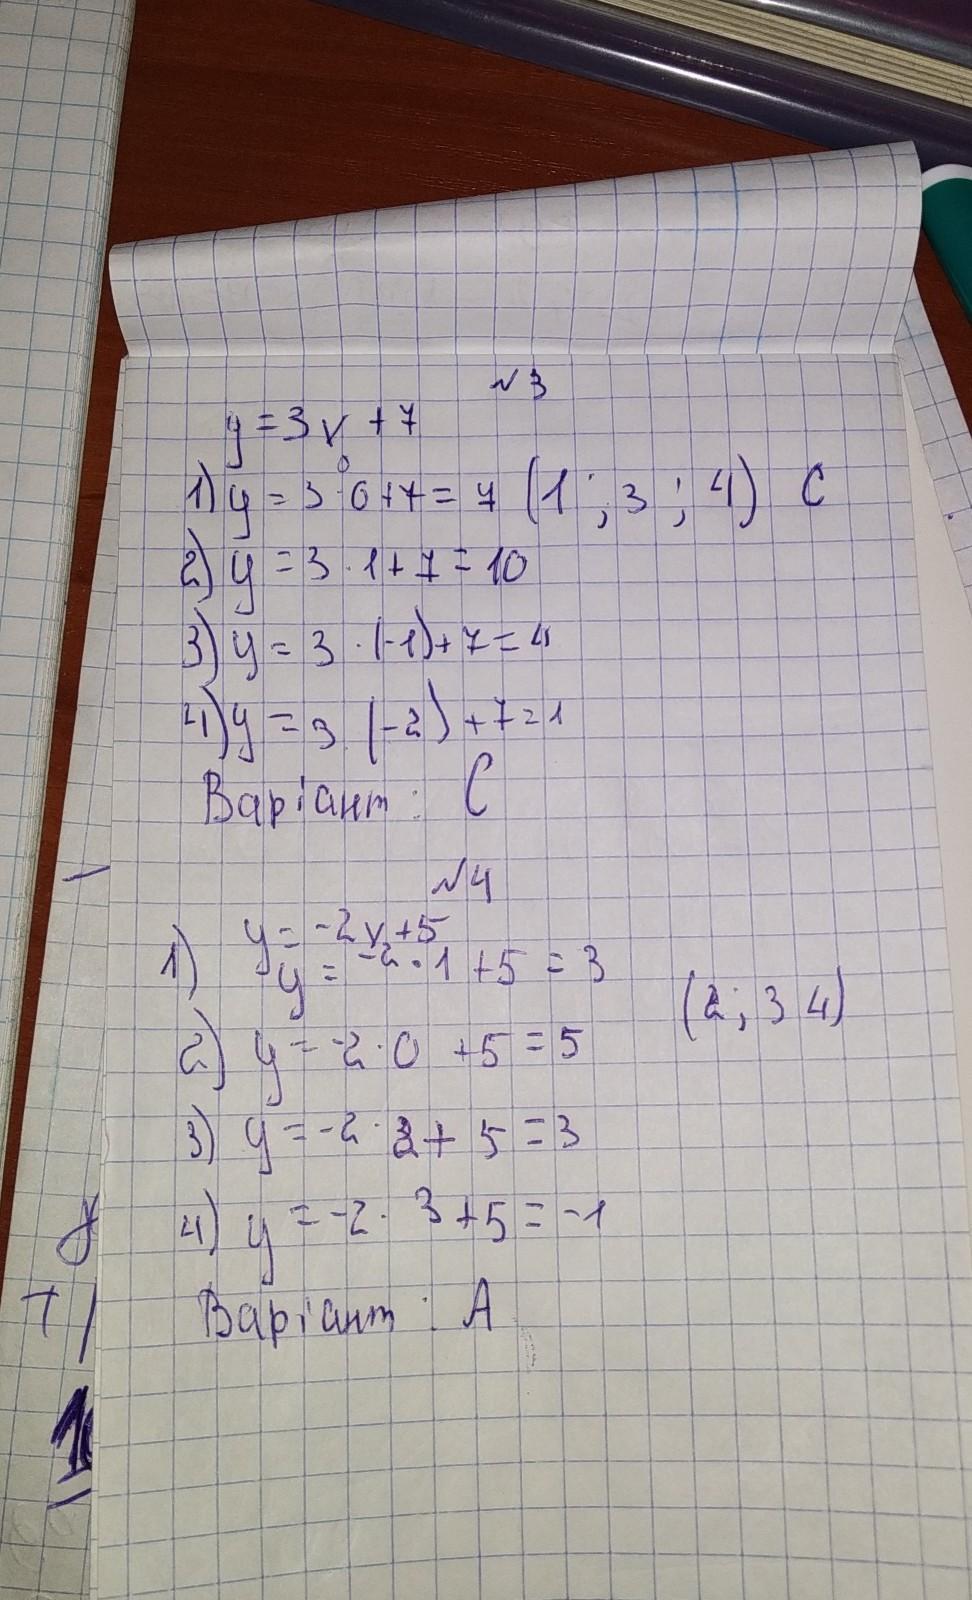 №3
y = 3x + 7
1) y = 3·0+7 = 7 (1 ; 3 ; 4) C
2) y = 3·1+7 = 10
3) y = 3·(-1)+7 = 4
4) y = 3 (-2) +7=1
Варіант: C
№4
y = -2x+5
1) y = -2·1 +5 = 3
(2; 3 4)
2) y = -2·0 +5 = 5
3) y = -2· 2+ 5 = 3
4) y = -2· 3+5 = -1
Варіант: А